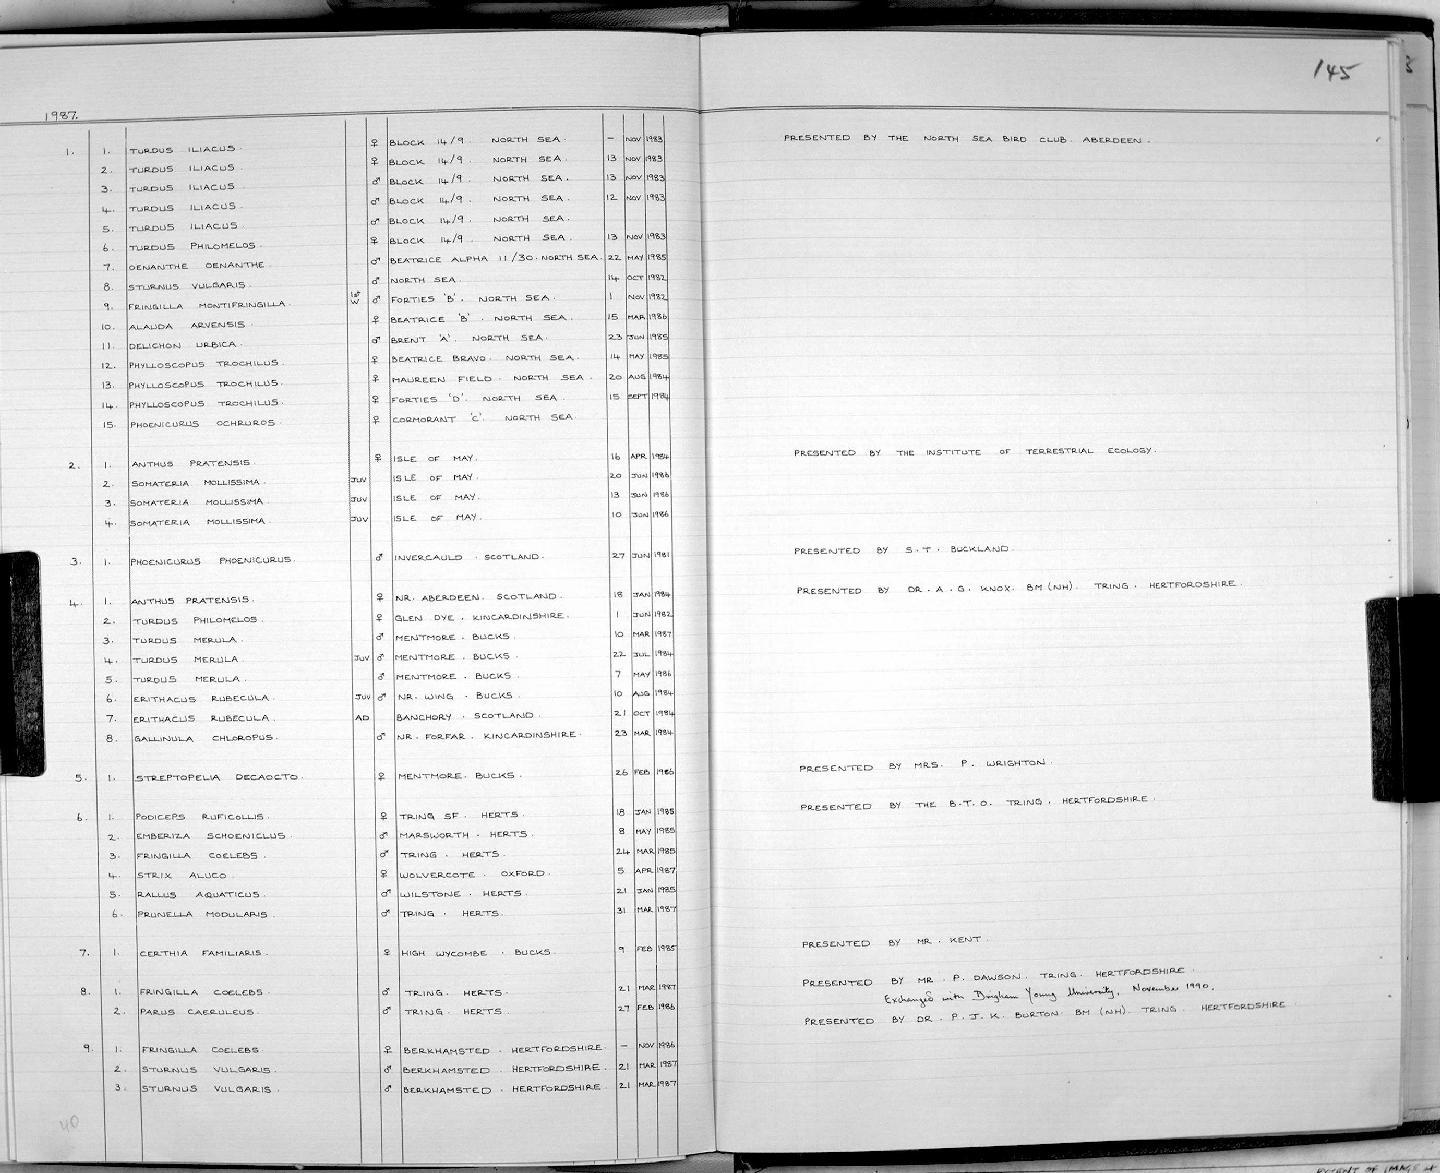 145
1987.
1. 1. TURDUS ILIACUS. ♀ BLOCK 14/9. NORTH SEA. – NOV 1983 PRESENTED BY THE NORTH SEA BIRD CLUB. ABERDEEN.
2. TURDUS ILIACUS. ♀ BLOCK 14/9. NORTH SEA. 13 NOV 1983
3. TURDUS ILIACUS ♂ BLOCK 14/9. NORTH SEA. 13 NOV 1983
4. TURDUS ILIACUS. ♂ BLOCK 14/9. NORTH SEA. 12 NOV 1983
5. TURDUS ILIACUS. ♂ BLOCK 14/9. NORTH SEA.
6. TURDUS PHILOMELOS. ♀ BLOCK 14/9. NORTH SEA. 13 NOV 1983
7. OENANTHE OENANTHE. ♂ BEATRICE ALPHA 11/30. NORTH SEA. 22 MAY 1985
8. STURNUS VULGARIS. ♂ NORTH SEA. 14 OCT 1982
9. FRINGILLA MONTIFRINGILLA. 1st W ♂ FORTIES 'B'. NORTH SEA. 1 NOV 1982
10. ALAUDA ARVENSIS. ♀ BEATRICE 'B'. NORTH SEA. 15 MAR 1986
11. DELICHON URBICA. ♂ BRENT 'A'. NORTH SEA. 23 JUN 1985
12. PHYLLOSCOPUS TROCHILUS. ♀ BEATRICE BRAVO. NORTH SEA. 14 MAY 1985
13. PHYLLOSCOPUS TROCHILUS. ♀ MAUREEN FIELD. NORTH SEA. 20 AUG 1984
14. PHYLLOSCOPUS TROCHILUS. ♀ FORTIES 'D'. NORTH SEA. 15 SEPT 1984
15. PHOENICURUS OCHRUROS. ♀ CORMORANT 'C'. NORTH SEA
2. 1. ANTHUS PRATENSIS. ♀ ISLE OF MAY. 16 APR 1984 PRESENTED BY THE INSTITUTE OF TERRESTRIAL ECOLOGY.
2. SOMATERIA MOLLISSIMA. JUV ISLE OF MAY. 20 JUN 1986
3. SOMATERIA MOLLISSIMA. JUV ISLE OF MAY. 13 JUN 1986
4. SOMATERIA MOLLISSIMA. JUV ISLE OF MAY. 10 JUN 1986
3. 1. PHOENICURUS PHOENICURUS. ♂ INVERCAULD. SCOTLAND. 27 JUN 1981 PRESENTED BY S.T. BUCKLAND.
4. 1. ANTHUS PRATENSIS. ♀ NR. ABERDEEN. SCOTLAND. 18 JAN 1984 PRESENTED BY DR. A. G. KNOX. BM (NH). TRING. HERTFORDSHIRE.
2. TURDUS PHILOMELOS. ♀ GLEN DYE. KINCARDINSHIRE. 1 JUN 1982
3. TURDUS MERULA. ♂ MENTMORE. BUCKS. 10 MAR 1987
4. TURDUS MERULA. JUV ♂ MENTMORE. BUCKS. 22 JUL 1984
5. TURDUS MERULA. ♂ MENTMORE. BUCKS. 7 MAY 1986
6. ERITHACUS RUBECULA. JUV ♂ NR. WING. BUCKS. 10 AUG 1984
7. ERITHACUS RUBECULA. AD BANCHORY. SCOTLAND. 21 OCT 1984
8. GALLINULA CHLOROPUS. ♂ NR. FORFAR. KINCARDINSHIRE. 23 MAR 1984
5. 1. STREPTOPELIA DECAOCTO. ♀ MENTMORE. BUCKS. 26 FEB 1986 PRESENTED BY MRS. P. WRIGHTON.
6. 1. PODICEPS RUFICOLLIS. ♀ TRING SF. HERTS. 18 JAN 1985 PRESENTED BY THE B.T.O. TRING. HERTFORDSHIRE.
2. EMBERIZA SCHOENICLUS. ♂ MARSWORTH. HERTS. 8 MAY 1985
3. FRINGILLA COELEBS. ♂ TRING. HERTS. 24 MAR 1985
4. STRIX ALUCO. ♀ WOLVERCOTE. OXFORD. 5 APR 1987
5. RALLUS AQUATICUS. ♂ WILSTONE. HERTS. 21 JAN 1985
6. PRUNELLA MODULARIS. ♂ TRING. HERTS. 31 MAR 1987
7. 1. CERTHIA FAMILIARIS. ♀ HIGH WYCOMBE. BUCKS. 9 FEB 1985 PRESENTED BY MR. KENT.
8. 1. FRINGILLA COELEBS. ♂ TRING. HERTS. 21 MAR 1987 PRESENTED BY MR. P. DAWSON. TRING. HERTFORDSHIRE.
Exchanged with Brigham Young University, November 1990.
2. PARUS CAERULEUS. ♂ TRING. HERTS. 27 FEB 1986
PRESENTED BY DR. P. J. K. BURTON. BM (NH). TRING. HERTFORDSHIRE
9. 1. FRINGILLA COELEBS. ♀ BERKHAMSTED. HERTFORDSHIRE. – NOV 1986
2. STURNUS VULGARIS. ♂ BERKHAMSTED. HERTFORDSHIRE. 21 MAR 1987
3. STURNUS VULGARIS. ♂ BERKHAMSTED. HERTFORDSHIRE. 21 MAR 1987
40
EXTENT OF IMAGE